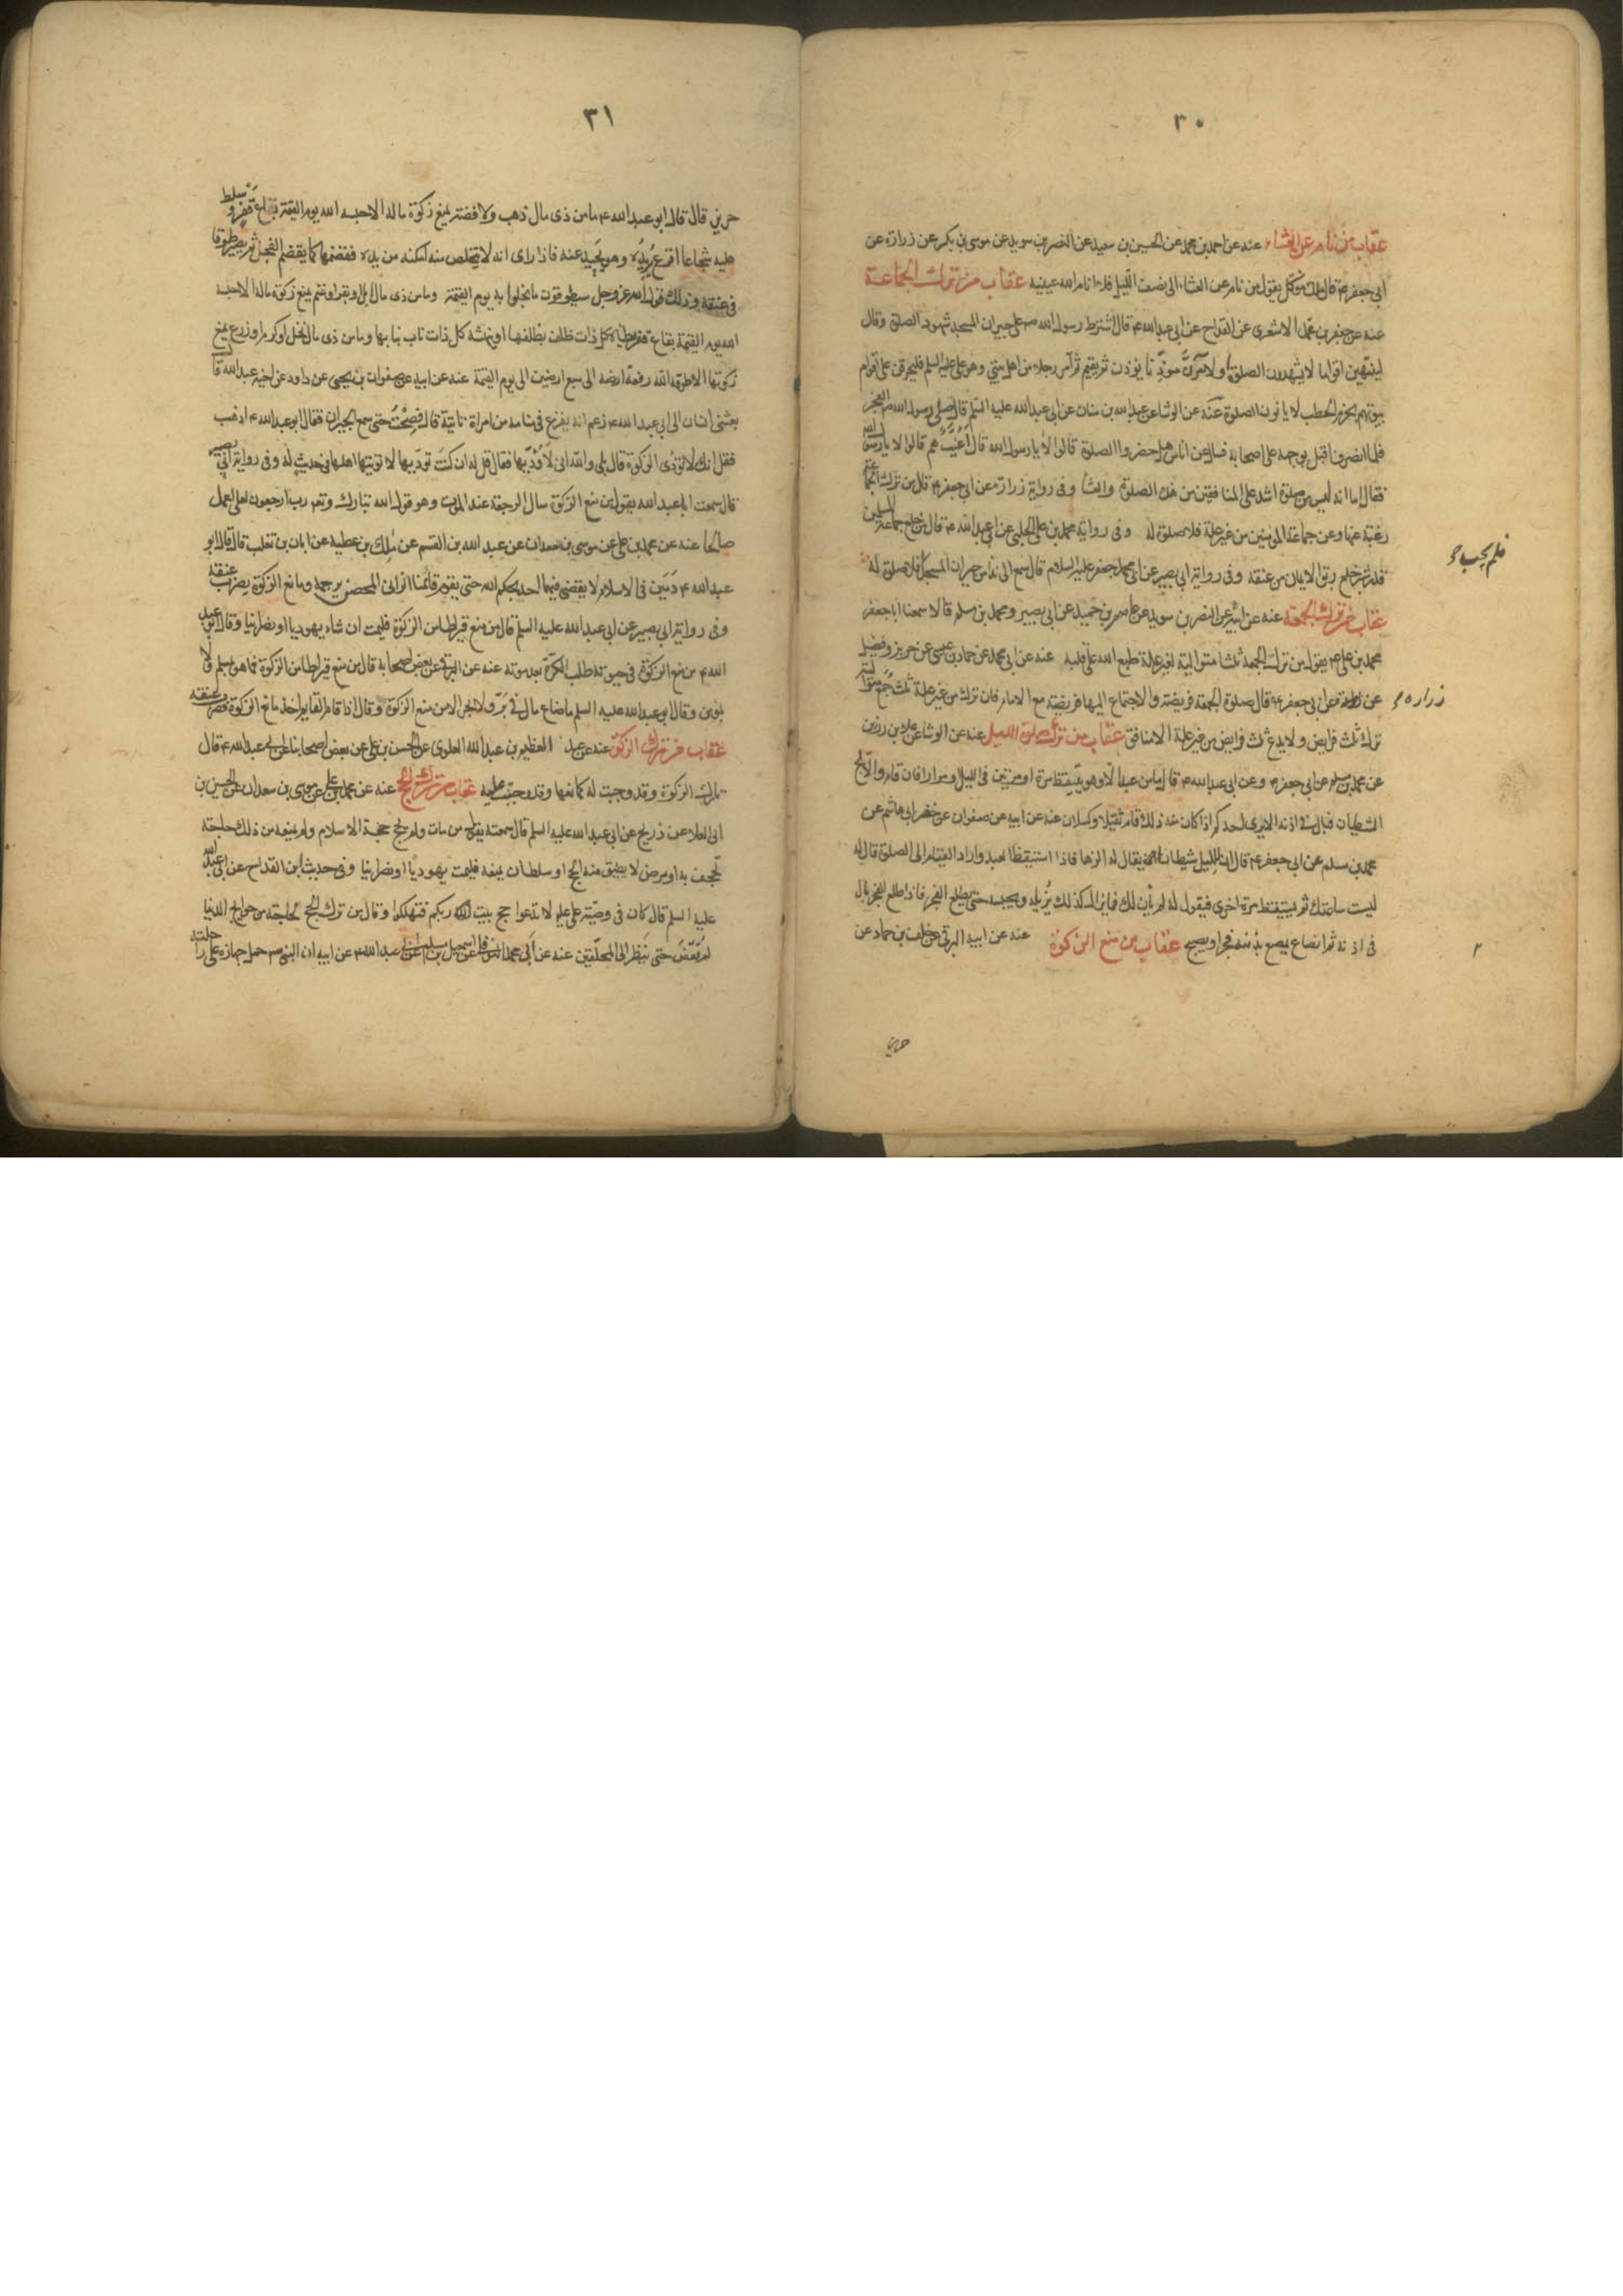 ٣٠
عقاب من نام عن العشاء عنه عن احمد بن محمد عن الحسين بن سعيد عن النضر بن سويد عن موسى بن بكر عن زرارة عن
ابى جعفر ع قال ملك موكل يقول من نام عن العشاء الى نصف الليل فلا انام الله عينيه عقاب من ترك الجماعة
عنه عن جعفر بن محمد الاشعرى عن القداح عن ابى عبدالله ع قال اشترط رسول الله ص على جيران المسجد شهود الصلوة وقال
لينتهين اقواما لا يشهدون الصلوة او لآمرن مؤذنا يؤذن ثم يقيم ثم آمر رجلا من اهل بيتى وهو على عليه السلم فليحرقن على اقوام
بيوتهم بحزم الحطب لا ياتون الصلوة عنه عن الوشا عن عبدالله بن سنان عن ابى عبدالله عليه السلم قال صلى رسول الله ص الفجر
فلما انصرف اقبل بوجهه على اصحابه فسال عن اناس هل حضروا الصلوة قالوا لا يا رسول الله قال أغُيَّبٌ هم قالوا لا يا رسول الله
فقال اما انه ليس من صلوة اشد على المنافقين من هذه الصلوة والعشا وفى رواية زرارة عن ابى جعفر ع قال من ترك الجماعة
رغبة عنها وعن جماعة المؤمنين من غير علة فلا صلوة له وفى رواية محمد بن على الحلبى عن ابى عبدالله ع قال من خلع جماعة المسلمين
قدر شبر خلع ربق الايمان من عنقه وفى رواية ابى بصير عن ابى محمد جعفر عليه السلام قال سمع الندا من جيران المسجد فلا صلوة له
فلم يجب
عقاب من ترك الجمعة عنه عن ابيه عن النضر بن سويد عن عاصم بن حميد عن ابى بصير ومحمد بن مسلم قالا سمعنا ابا جعفر
محمد بن على ع يقول من ترك الجمعة ثلثا متوالية لغير علة طبع الله على قلبه عنه عن ابى محمد عن حماد بن عيسى عن حريز وفضيل
عن زرارة عن ابى جعفر ع قال صلوة الجمعة فريضة والاجتماع اليها فريضة مع الامام فان ترك من غير علة ثلث جُمَع متوالية
زراره
ترك ثلث فرايض ولا يدع ثلث فرايض من غير علة الا منافق عقاب من ترك صلوة الليل عنه عن الوشا عن علاء بن رزين
عن محمد بن مسلم عن ابى جعفر ع وعن ابى عبدالله ع قال ما من عبد الا وهو يتيقظ مرة او مرتين فى الليل او مرارا فان قام والا فحج
الشيطان فبال فى اذنه الا يرى احدكم اذا كان منه ذلك قام ثقيلا وكسلان عنه عن ابيه عن صفوان عن خضر ابى هاشم عن
محمد بن مسلم عن ابى جعفر ع قال ان لليل شيطانا يقال له الزها فاذا استيقظ العبد واراد القيام الى الصلوة قال له
ليست ساعتك ثم يستيقظ مرة اخرى فيقول له لم يأن لك فما يزال كذلك يُزيله ويحبسه حتى يطلع الفجر فاذا طلع الفجر بال
فى اذنه ثم انصاع يمصع بذنبه فخرا ويصيح عقاب من منع الزكوة عنه عن ابيه البرقى عن خلف بن حماد عن
حريز
٣١
حريز قال قال ابو عبدالله ع ما من ذى مال ذهب ولا فضة يمنع زكوة ماله الا حبسه الله يوم القيمة بقاع قفر وسلط
عليه شجاعا اقرع يُريدُه وهو يَحيد عنه فاذا راى انه لا يتخلص منه امكنه من يده فقضمها كما يقضم الفجل ثم يصير طوقا
فى عنقه وذلك قول الله عز وجل سيطوقون ما بخلوا به يوم القيمة وما من ذى مال ابل او بقر او غنم يمنع زكوة ماله الا حبسه
الله يوم القيمة بقاع قفر يطأه كل ذات ظلف بظلفها او ينهشه كل ذات ناب بنابها وما من ذى مال نخل او كرم او زرع يمنع
زكوتها الا طوقه الله رفعة ارضه الى سبع ارضين الى يوم القيمة عنه عن ابيه عن صفوان بن يحيى عن داود عن اخيه عبدالله قال
بعثنى انسان الى ابى عبدالله ع زعم انه يفزع فى منامه من امراة تاتية قال فصِحْتُ حتى سمع الجيران فقال ابو عبدالله ع اذهب
فقل انك لا تؤدى الزكوة قال بلى والله انى لَاُؤدّيها فقال قل له ان كنت تؤدّيها لا تؤتيها اهلها فى حديث له وفى رواية ابى بصير
قال سمعت ابا عبدالله يقول من منع الزكوة سال الرجعة عند الموت وهو قول الله تبارك وتعالى رب ارجعون لعلى اعمل
صالحا عنه عن محمد بن على عن موسى بن سعدان عن عبدالله بن القسم عن ملك بن عطية عن ابان بن تغلب قال قال ابو
عبدالله ع دَمَيَن فى الاسلام لا يقضى فيهما احد بحكم الله حتى يقوم قائمنا الزانى المحصن يرجمه ومانع الزكوة يضرب عنقه
وفى رواية ابى بصير عن ابى عبدالله عليه السلم قال من منع قيراطا من الزكوة فليمت ان شاء يهوديا او نصرانيا وقال ابو عبد
الله ع من منع الزكوة فى حيوته طلب الكرّة بعد موته عنه عن البرقى عن بعض اصحابه قال من منع قيراطا من الزكوة فما هو بمسلم ولا
بمؤمن وقال ابو عبدالله عليه السلم ما ضاع مال فى بَرّ ولا بحر الا من منع الزكوة وقال اذا قام القايم اخذ مانع الزكوة فضرب عنقه
عقاب من ترك الزكوة عنه عن عبد العظيم بن عبدالله العلوى عن الحسن بن على عن بعض اصحابنا عن ابى عبدالله ع قال
تارك الزكوة وقد وجبت له كمانعها وقد وجبت عليه عقاب من ترك الحج عنه عن محمد بن على عن موسى بن سعدان عن الحسين بن
ابى العلا عن ذريح عن ابى عبدالله عليه السلم قال سمعته يقول من مات ولم يحج حجة الاسلام ولم يمنعه من ذلك حاجة
تجحف به او مرض لا يطيق منه الحج او سلطان يمنعه فليمت يهوديا او نصرانيا وفى حديث ابن القداح عن ابى عبدالله
عليه السلم قال كان فى وصيّة على ع لا تدعوا حج بيت ربكم فتهلكوا وقال من ترك الحج لحاجة من حوايج الدنيا
لم تُقضَ حتى ينظر الى المحلّقين عنه عن ابى محمد عبدالله ع عن ابيه ان النبى ص حمل جهازه على راحلته